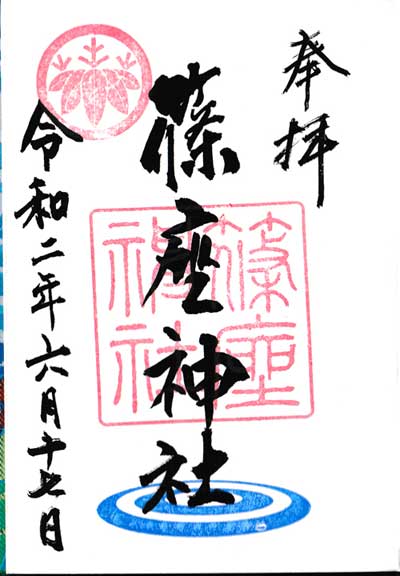 奉拝
篠座神社
篠座
神社
令和二年六月十七日